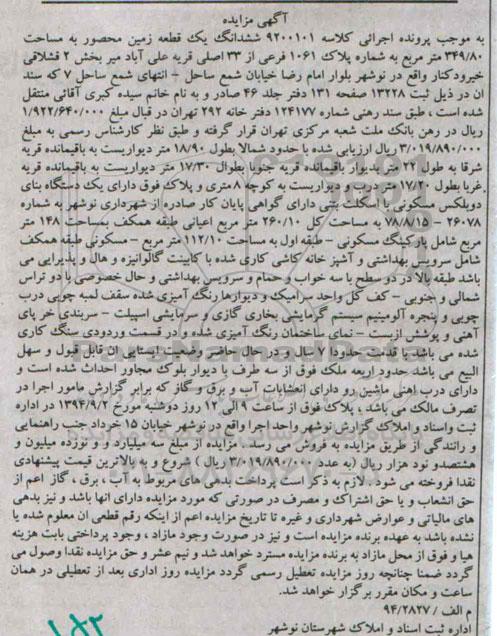 آگهی مزایده
به موجب پرونده اجرائی کلاسه ۹۲۰۰۱۰۱ ششدانگ یک قطعه زمین محصور به مساحت
۳۴۹/۸۰ متر مربع به شماره پلاک ۱۰۶۱ فرعی از ۳۳ اصلی قریه علی آباد میر بخش ۲ قشلاقی
خیرودکنار واقع در نوشهر بلوار امام رضا خیابان شمع ساحل - انتهای شمع ساحل ۷ که سند
ان در ذیل ثبت ۱۳۲۲۸ صفحه ۱۳۱ دفتر جلد ۴۶ صادر و به نام خانم سیده کبری آقائی منتقل
شده است ، طبق سند رهنی شماره ۱۲۴۱۷۷ دفتر خانه ۲۹۲ تهران در قبال مبلغ ۱/۹۲۲/۶۴۰/۰۰۰
ریال در رهن بانک ملت شعبه مرکزی تهران قرار گرفته و طبق نظر کارشناس رسمی به مبلغ
۳/۰۱۹/۸۹۰/۰۰۰ ریال ارزیابی شده با حدود شمالا بطول ۱۸/۹۰ متر دیواریست به باقیمانده قریه
شرقا به طول ۲۲ متر بدیوار باقیمانده قریه جنوبا بطوال ۱۷/۳۰ متر دیواریست به باقیمانده قریه
غربا بطول ۱۷/۲۰ متر درب و دیواریست به کوچه ۸ متری و پلاک فوق دارای یک دستگاه بنای
دوبلکس مسکونی با اسکلت بتنی دارای گواهی پایان کار صادره از شهرداری نوشهر به شماره
۲۶۰۷۸ - ۷۸/۸/۱۵ به مساحت کل ۲۶۰/۱۰ متر مربع اعیانی طبقه همکف بمساحت ۱۴۸ متر
مربع شامل پارکینگ مسکونی - طبقه اول به مساحت ۱۱۲/۱۰ متر مربع - مسکونی طبقه همکف
شامل سرویس بهداشتی و آشپز خانه کاشی کاری شده با کابینت گالوانیزه و هال و پذیرایی می
باشد طبقه بالا در دو سطح با سه خواب و حمام و سرویس بهداشتی و حال خصوصی با دو تراس
شمالی و جنوبی - کف کل واحد سرامیک و دیوارها رنگ آمیزی شده سقف لمبه چوبی درب
چوبی و پنجره آلومینیم سیستم گرمایشی بخاری گازی و سرمایشی اسپیلت - سربندی خر پای
آهنی و پوشش ازبست - نمای ساختمان رنگ آمیزی شده و در قسمت وردودی سنگ کاری
شده می باشد با قدمت حدودا ۷ سال و در حال حاضر وضعیت ایستایی ان قابل قبول و سهل
البیع می باشد حدود اربعه ملک فوق از سه طرف با دیوار بلوک مجاور احداث شده است و
دارای درب اهنی ماشین رو دارای انعشابات آب و برق و گاز که برابر گزارش مامور اجرا در
تصرف مالک می باشد ، پلاک فوق از ساعت ۹ الی ۱۲ روز دوشنبه مورخ ۱۳۹۴/۹/۲ در اداره
ثبت واسناد و املاک گزارش نوشهر واحد اجرا واقع در نوشهر خیابان ۱۵ خرداد جنب راهنمایی
و رانندگی از طریق مزایده به فروش می رسد. مزایده از مبلغ سه میلیارد و و نوزده میلیون و
هشتصدو نود هزار ریال (به عدد ۳/۰۱۹/۸۹۰/۰۰۰ ریال ) شروع و به بالاترین قیمت پیشنهادی
نقدا فروخته می شود . لازم به ذکر است پرداخت بدهی های مربوط به آب ، برق ، گاز اعم از
حق انشعاب و یا حق اشتراک و مصرف در صورتی که مورد مزایده دارای انها باشد و نیز بدهی
های مالیاتی و عوارض شهرداری و غیره تا تاریخ مزایده اعم از اینکه رقم قطعی ان معلوم شده یا
نشده باشد به عهده برنده مزایده است و نیز در صورت وجود مازاد ، وجود پرداختی بابت هزینه
هیا و فوق از محل مازاد به برنده مزایده مسترد خواهد شد و نیم عشر و حق مزایده نقدا وصول می
گردد ضمنا چنانچه روز مزایده تعطیل رسمی گردد مزایده روز اداری بعد از تعطیلی در همان
ساعت و مکان مقرر برگزار خواهد شد.
م الف / ۹۴/۲۸۲۷
اداره ثبت اسناد و املاک شهرستان نوشهر